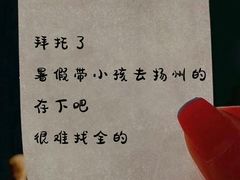 拜托了
暑假带小孩去扬州的
存下吧
很难找全的